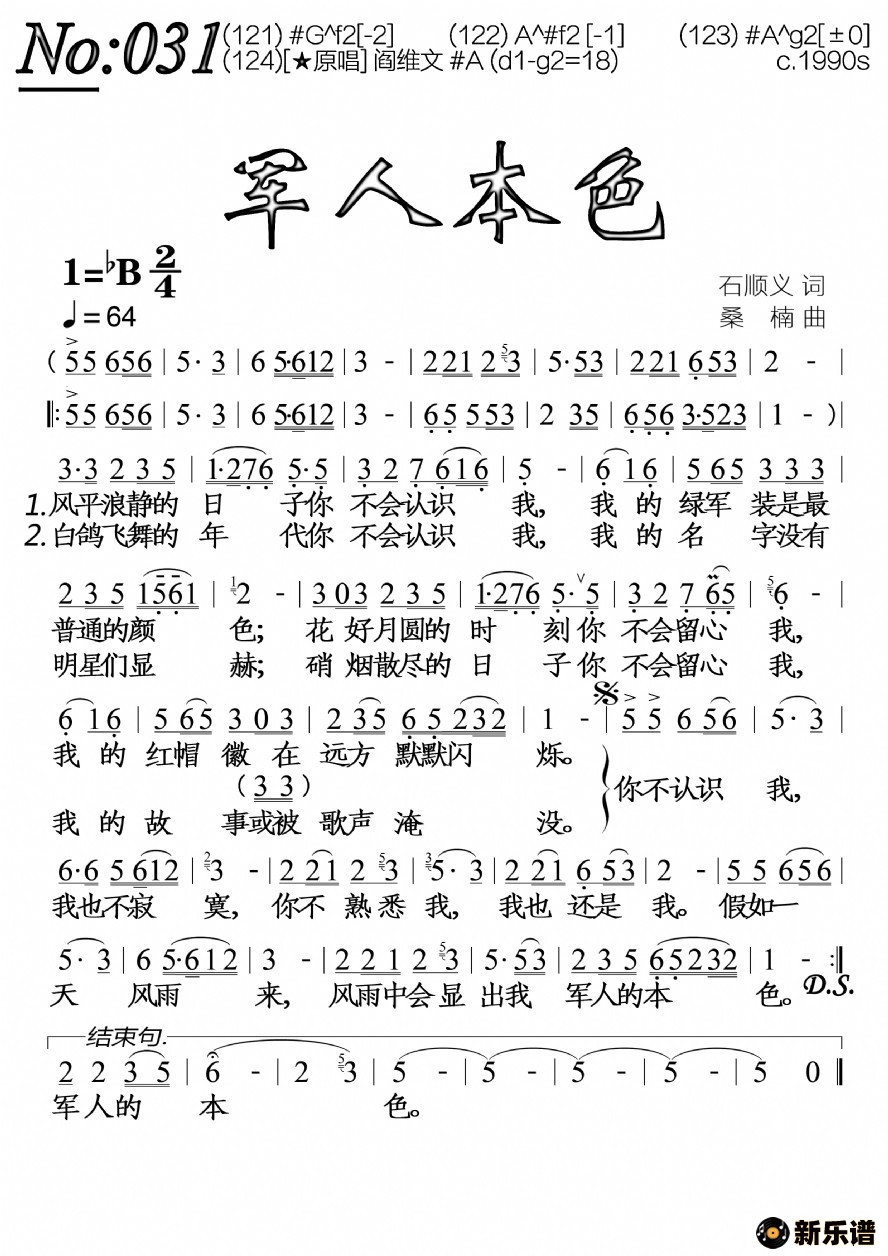 No:031
(121) #G^f2[-2] (122) A^#f2 [-1] (123) #A^g2[±0]
(124)[★原唱] 阎维文 #A (d1-g2=18) c.1990s
军人本色
1=♭B 2/4
♩=64
石顺义 词
桑 楠 曲
( 55 656 | 5· 3 | 6 5·612 | 3 - | 221 2 53 | 5·53 | 221 653 | 2 - |
‖: 55 656 | 5· 3 | 6 5·612 | 3 - | 65 553 | 2 35 | 656 3·523 | 1 - ) |
3·3 2 3 5 | 1·276 5·5 | 3 2 7 616 | 5 - | 6 16 | 5 65 3 3 3 |
1.风平浪静的 日 子你 不会认识 我, 我 的 绿军 装是最
2.白鸽飞舞的 年 代你 不会认识 我, 我 的 名 字没有
2 3 5 1561 | 1 2 - | 3 03 2 3 5 | 1·276 5·∨5 | 3 2 7 65 | 5 6 - |
普通的颜 色; 花 好月圆的 时 刻你 不会留心 我,
明星们显 赫; 硝 烟散尽的 日 子你 不会留心 我,
6 16 | 5 65 3 0 3 | 2 35 6 5 232 | 1 - | 5 5 6 56 | 5· 3 |
我 的 红帽 徽 在 远方 默默闪 烁。
( 3 3 ) 你不认识 我,
我 的 故 事或被 歌声 淹 没。
6·6 5 612 | 2 3 - | 2 21 2 5 3 | 3 5· 3 | 2 21 6 53 | 2 - | 5 5 656 |
我也不寂 寞, 你不 熟悉 我, 我也 还是 我。 假如一
5· 3 | 6 5·612 | 3 - | 2 2 1 2 5 3 | 5·53 | 2 3 5 65232 | 1 - :‖
天 风雨 来, 风雨中会显 出我 军人的本 色。 D.S.
结束句.
2 2 3 5 | 6 - | 2 5 3 | 5 - | 5 - | 5 - | 5 - | 5 0 ‖
军人的 本 色。
新乐谱